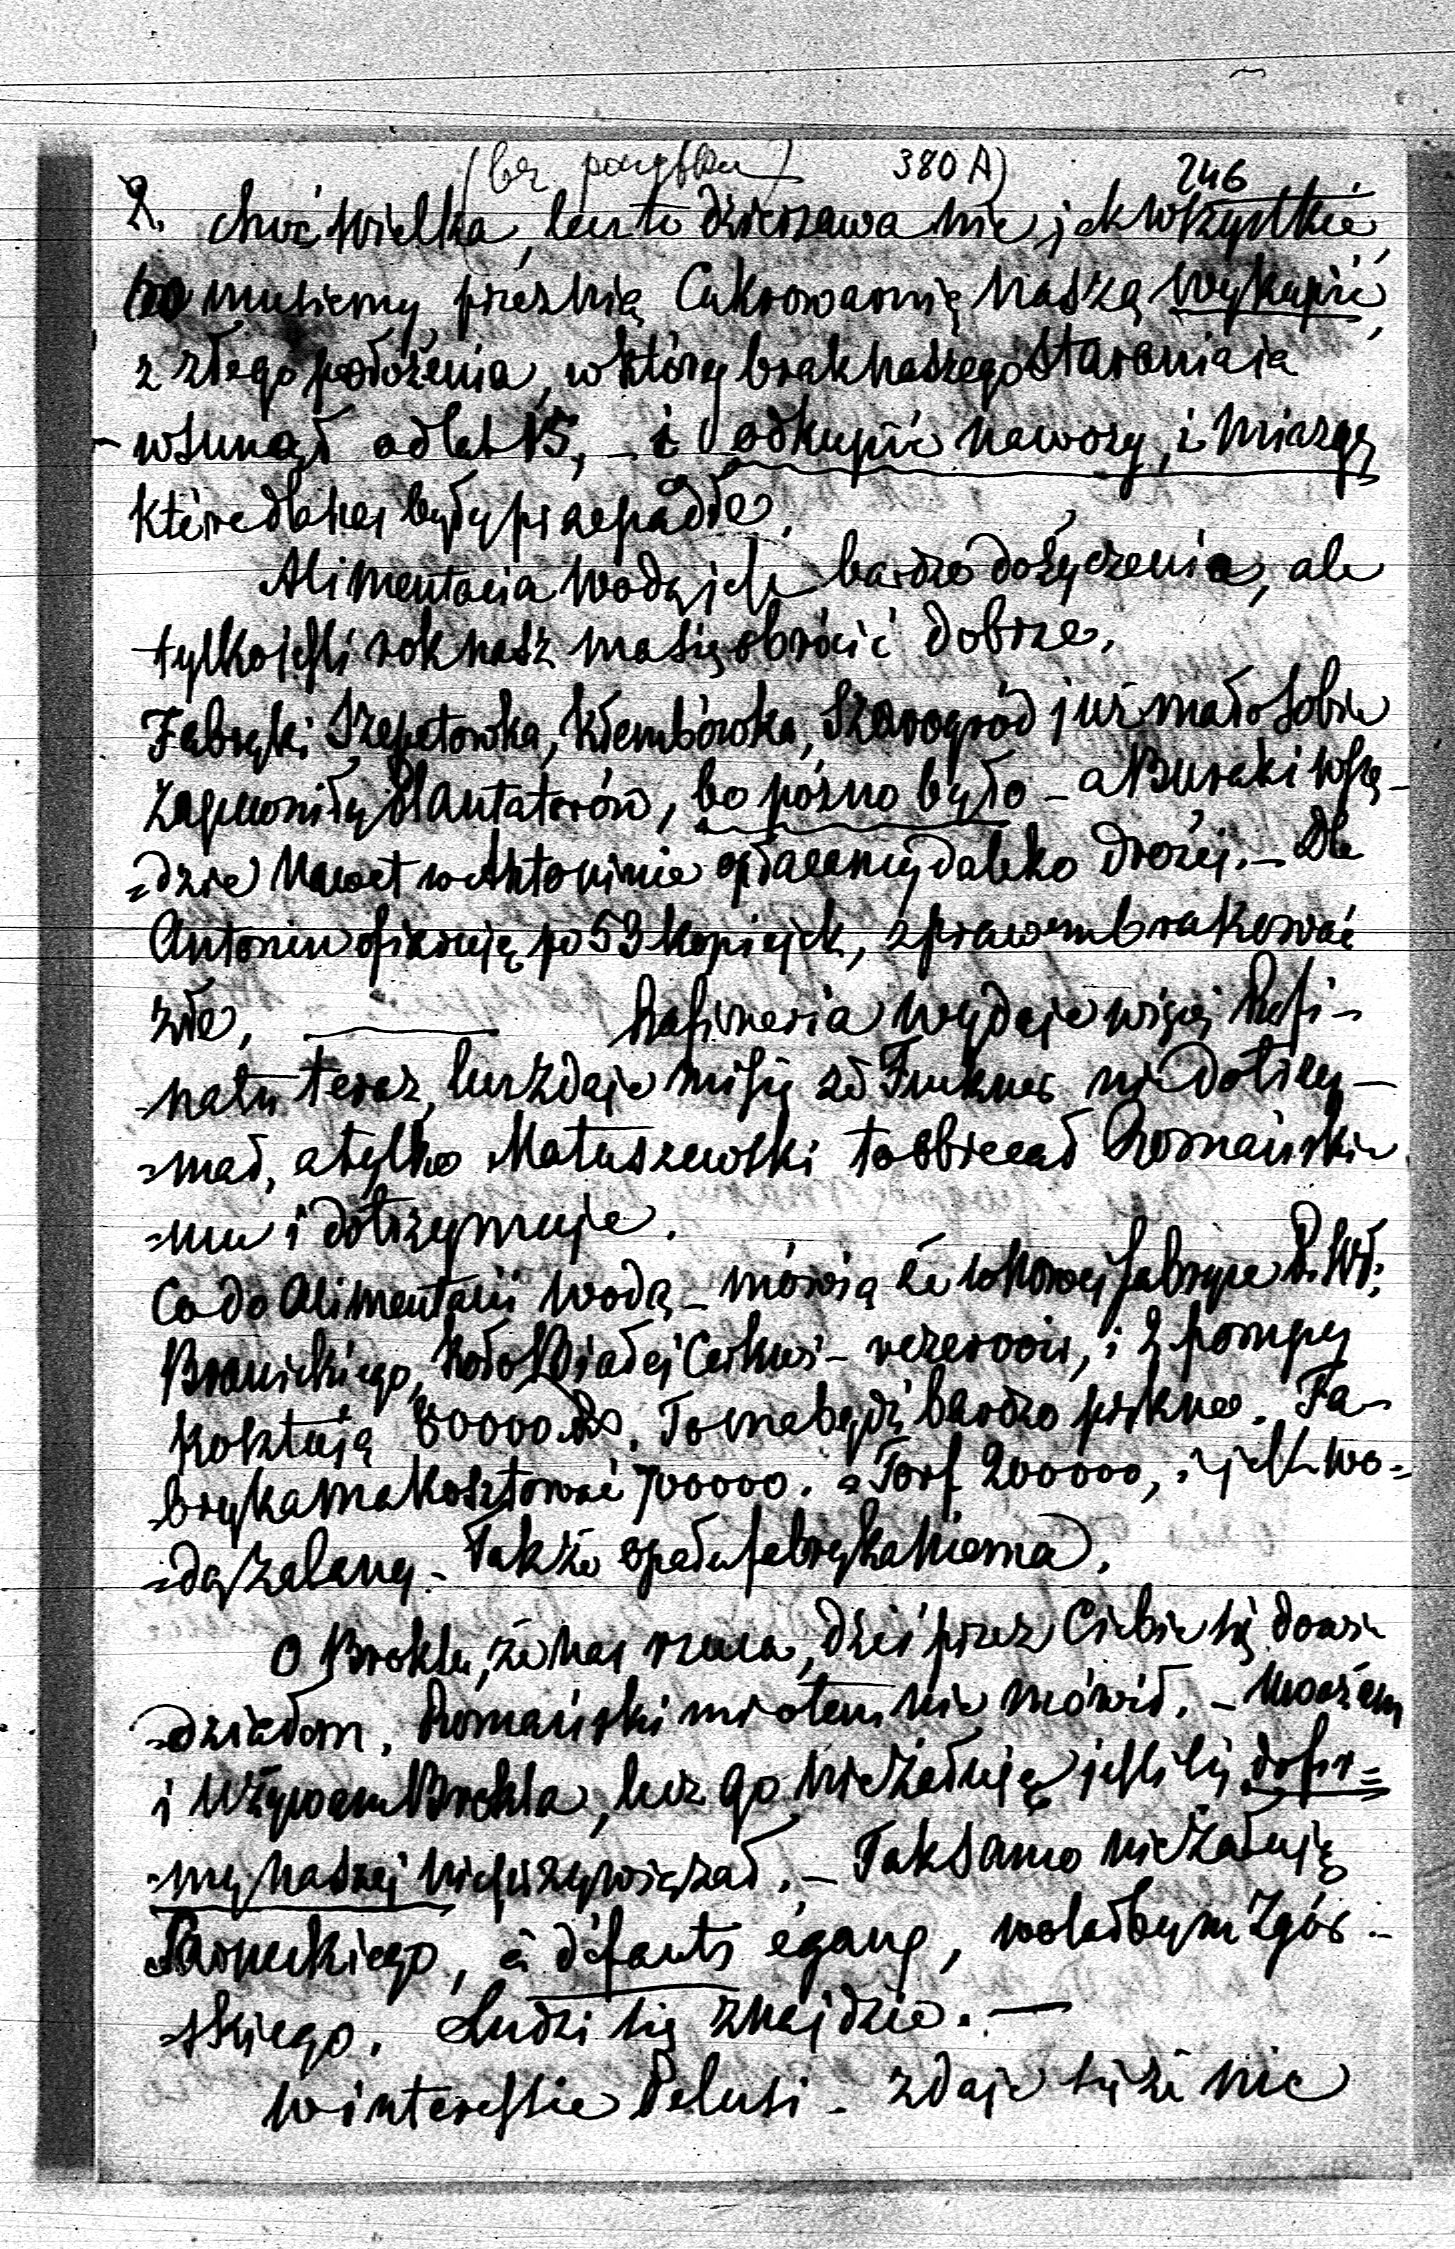 (bez początku) 380 A) 246
2. choć wielka, lecz to dzierżawa nie jak wszystkie,
bo musiemy przeznią Cukrowarnię naszą wykupić,
z złego położenia, w któréj brak naszego starania ją
wsunął od lat 15, – i odkupić nawozy, i miazgę
które dla nas były przepadłe.
Alimentacia wodą jest bardzo do życzenia, ale
tylko jeśli rok nasz ma się obrócić dobrze.
Fabryki Szepetowka, Klembówka, Szarogród już mało sobie
zapewniły Plantatorów, bo pózno było – a Buraki wszę-
=dzie nawet w Antoninie opłacemy daleko drożej. – Dla
Antonin ofiarują po 53 kopiejek, z prawem brakować
złe, Rafineria wydaje więcej Rafi-
-natu teraz, lecz zdaje mi się że nie dotrzy-
=mał, a tylko Matuszewski to obiecał Romańskie
=mu i dotrzymuje.
Co do Alimentacii wodą – mówią że w nowej fabryce P. Wł.
Branickiego, koło Białej Cerkwi – rezervoir, i 2 pompy
kosztują 80000 Rs. To ma być bardzo piękne. Fa-
-bryka ma kosztować 700000. a Torf 200000, i jest wo-
=dą zalany – Także opału fabryka niema.
O Brokla, że nas rzuca, dziś przez Ciebie się dowie
=działam. Romański mi o tem nie mówił. – 
i używam Brokla, lecz go nie żałuję jeśli się do fir=
=my naszej nie przywiązał. – Tak samo nie żałuję
à défauts égaux, wolałbym Zgór-
=skiego. Ludzi się znajdzie. –
W interessie Pelusi – zdaje się że nic